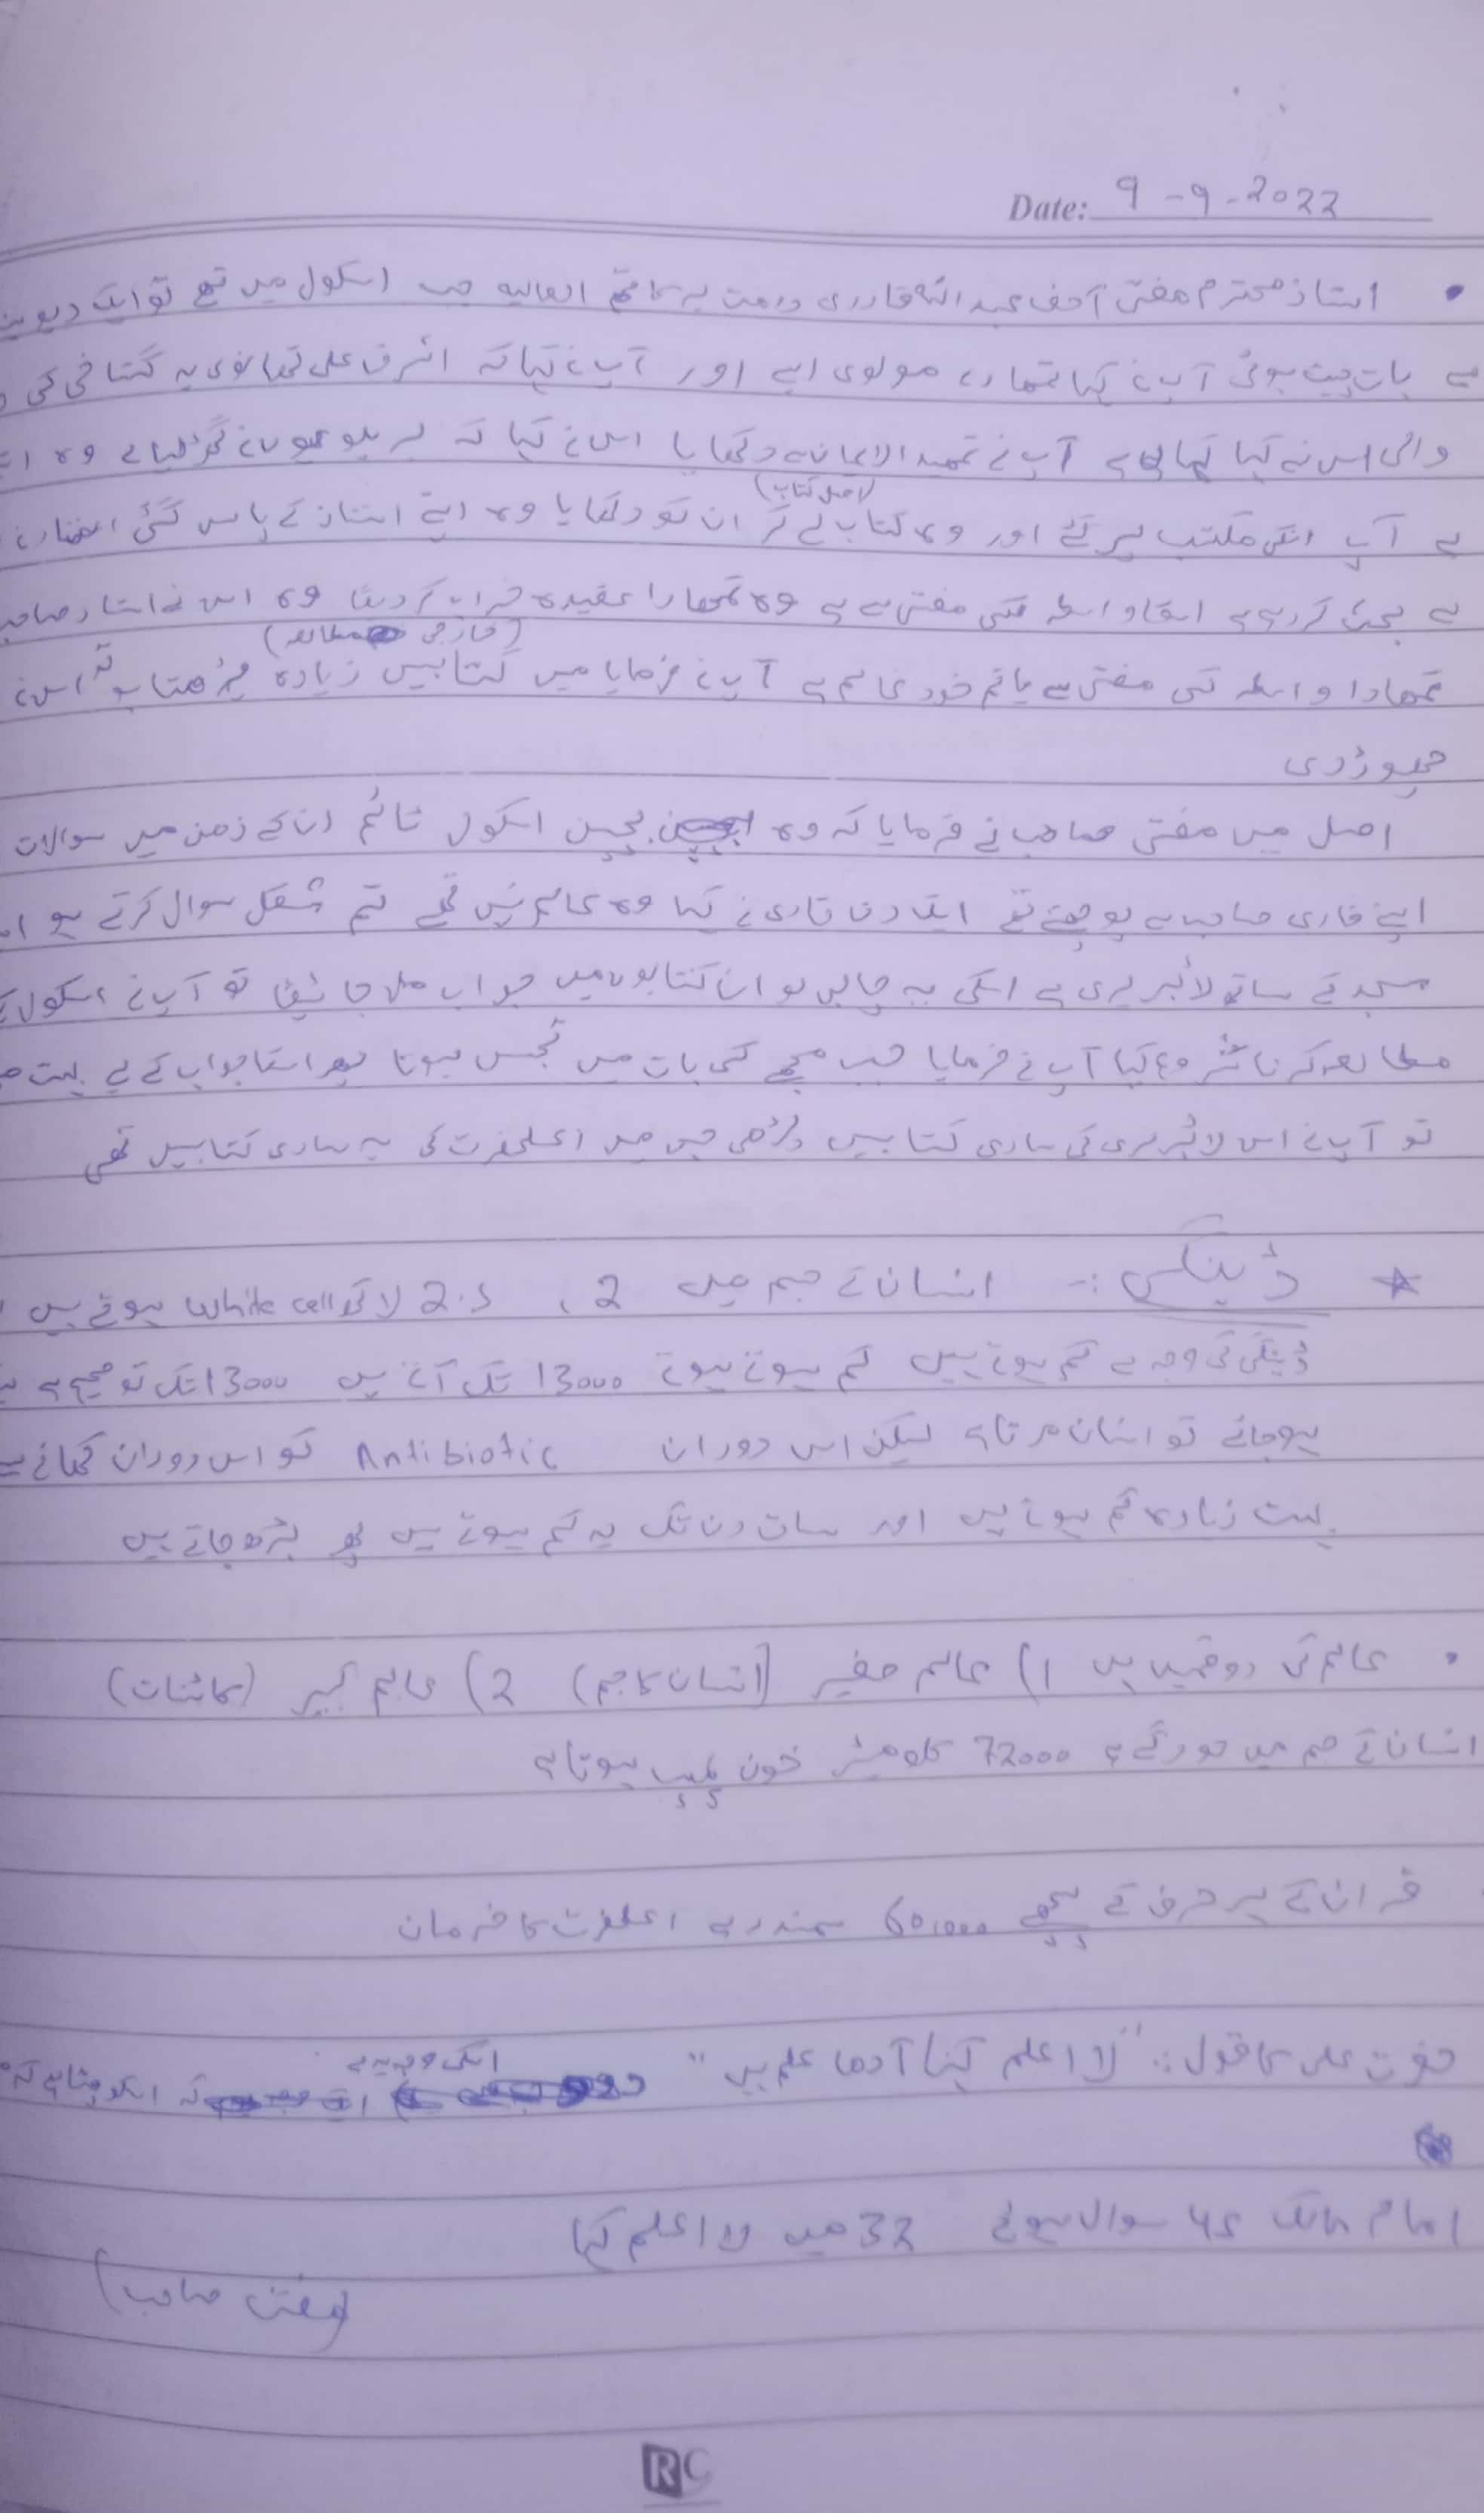 Date: 9-9-2022
• استاذ محترم مفتی آصف عبداللہ قادری دامت برکاتہم العالیہ جب اسکول میں تھے تو ایک
سے بات چیت ہوئی آپ نے کہا تمھارے مولوی ایسے اور آپ نے کہا کہ اشرف علی تھانوی یہ گستاخی کی
والی اس نے کہا کہا ہے آپ نے تمہید الایمان سے دکھایا اس نے کہا کہ بریلویوں نے گھڑ لیا ہے وہ
(اصل کتاب)
ہے آپ انکی مکتب پر گئے اور وہ کتاب لے کر ان کو دکھایا وہ اپنے استاذ کے پاس گئی
سے بحث کر رہے ہے اسکا واسطہ کسی مفتی سے ہے وہ تمھارا عقیدہ خراب کر دیگا وہ اس نے استاد صاحب
(خارجی مطالعہ)
تمھارا واسطہ کسی مفتی سے یا تم خود عالم ہے آپ نے فرمایا میں کتابیں زیادہ پڑھتا ہو تو اس نے
چھوڑ دی
اصل میں مفتی صاحب نے فرمایا کہ وہ بچپن اسکول ٹائم ان کے ذہن میں سوالات
اپنے قاری صاحب سے پوچھتے تھے ایک دن قاری نے کہا وہ عالم نہیں تھے تم مشکل سوال کرتے ہو
مسجد کے ساتھ لائبریری ہے اسکی یہ چابی لو ان کتابوں میں جواب مل جائیگا تو آپ نے اسکول
مطالعہ کرنا شروع کیا آپ نے فرمایا جب مجھے کسی بات میں تجسس ہوتا پھر اسکا جواب کے لیے بہت
تو آپ نے اس لائبریری کی ساری کتابیں پڑھی جس میں اعلحضرت کی یہ ساری کتابیں تھی
★ ڈینگی :- انسان کے جسم میں 2 ، 2.5 لاکھ White cell ہوتے ہیں
ڈینگی کی وجہ سے کم ہوتے ہیں کم ہوتے ہوتے 13000 تک آتے ہیں 13000 تک تو صحیح ہے
ہو جائے تو انسان مرتا ہے لیکن اس دوران Antibiotic کو اس دوران کھانے سے
بہت زیادہ کم ہوتے ہیں اور سات دن تک یہ کم ہوتے ہیں پھر بڑھ جاتے ہیں
• عالم کی دو قسمیں ہیں 1) عالم صغیر (انسان کا جسم) 2) عالم کبیر (کائنات)
انسان کے جسم میں جو رگے ہے 72000 کلو میٹر خون پمپ ہوتا ہے
قران کے ہر حرف کے پیچھے 60,000 سمندر ہے اعلحضرت کا فرمان
اسکی وجہ یہ ہے
حضرت علی کا قول :۔ "لا اعلم کہنا آدھا علم ہیں" کہ اسکو پتا ہے کہ
امام مالک سوال ہوئے 32 میں لا اعلم کہا
(مفتی صاحب)
RC